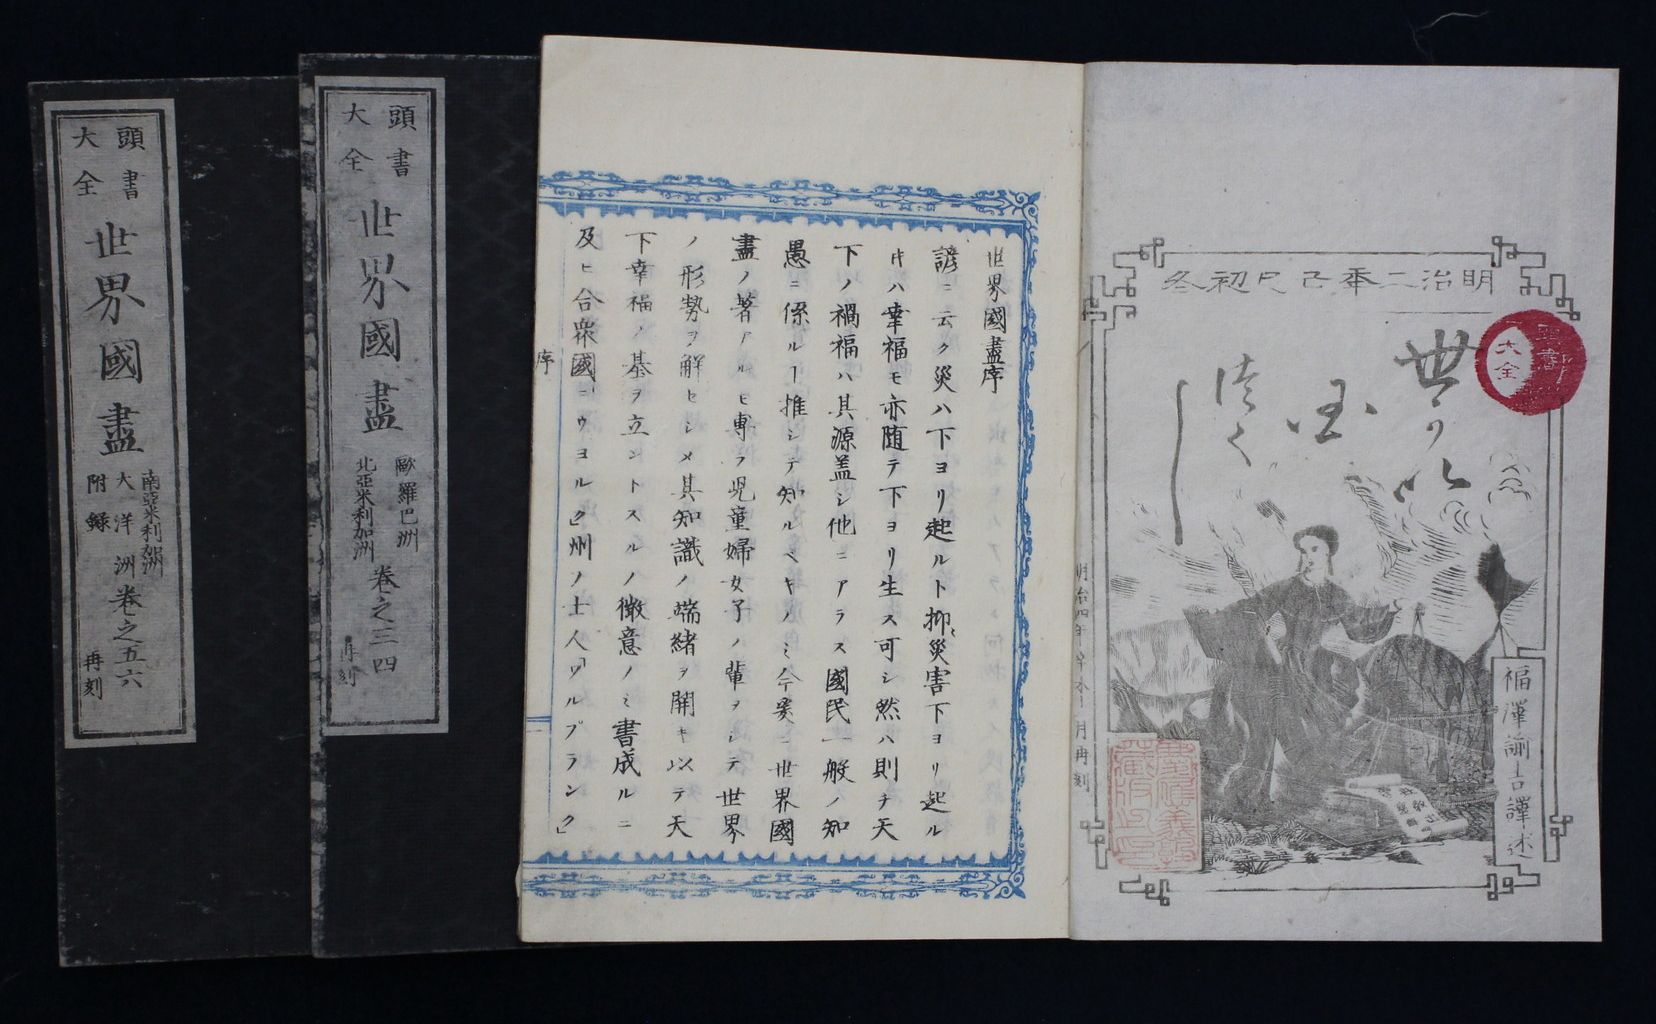 頭書
大全
世界國盡
南亞米利加洲
大洋洲
附録
卷之五六
再刻
頭書
大全
世界國盡
歐羅巴洲
北亞米利加洲
卷之三四
再刻
世界國盡序
諺ニ云ク災ハ下ヨリ起ルト抑〻災害下ヨリ起ル
キハ幸福モ亦随テ下ヨリ生ス可シ然ハ則チ天
下ノ禍福ハ其源盖シ他ニアラス國民一般ノ知
愚ニ係ルヿ推シテ知ルベキノミ今爰ニ世界國
盡ノ著アルモ專ラ児童婦女子ノ輩ヲシテ世界
ノ形勢ヲ解セシメ其知識ノ端緒ヲ開キ以テ天
下幸福ノ基ヲ立ントスルノ微意ノミ書成ルニ
及ヒ合衆國ニウヨルク州ノ士人ウルプランク
序
明治二年己巳初冬
頭書
大全
世界
国
つくし
福澤諭吉譯述
明治四年辛未
月再刻
慶應義塾
蔵版之印